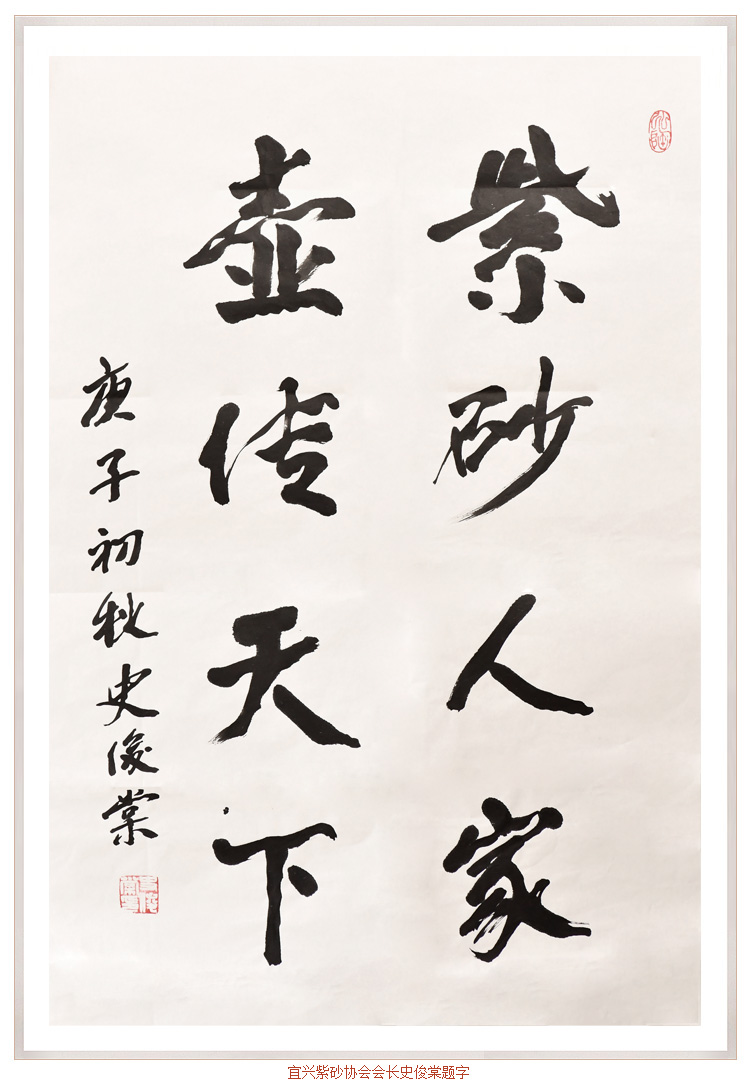 紫砂人家
壶传天下
庚子初秋史俊棠
宜兴紫砂协会会长史俊棠题字